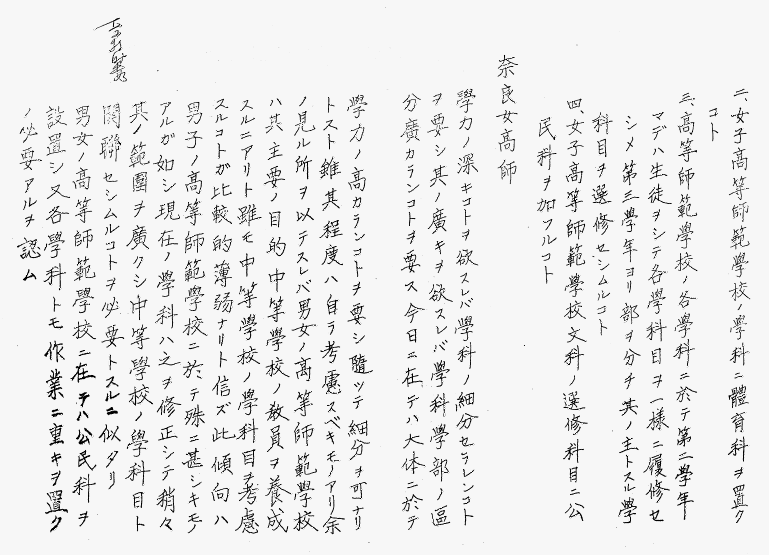 二、女子高等師範學校ノ學科ニ體育科ヲ置ク
コト
三、高等師範學校ノ各學科ニ於テ第二學年
マデハ生徒ヲシテ各學科目ヲ一樣ニ履修セ
シメ第三學年ヨリ部ヲ分チ其ノ主トスル學
科目ヲ選修セシムルコト
四、女子高等師範學校文科ノ選修科目ニ公
民科ヲ加フルコト
奈良女高師
學力ノ深キコトヲ欲スレバ學科ノ細分セラレンコト
ヲ要シ其ノ廣キヲ欲スレバ學科學部ノ區
分廣カランコトヲ要ス今日ニ在テハ大体ニ於テ
學力ノ高カランコトヲ要シ隨ツテ細分ヲ可ナリ
トスト雖其程度ハ自ラ考慮スベキモノアリ余
ノ見ル所ヲ以テスレバ男女ノ高等師範學校
ハ其主要ノ目的中等學校ノ教員ヲ養成
スルニアリト雖モ中等學校ノ學科目ヲ考慮
スルコトガ比較的薄弱ナリト信ズ此傾向ハ
男子ノ高等師範學校ニ於テ殊ニ甚シキモノ
アルガ如シ現在ノ學科ハ之ヲ修正シテ稍々
其ノ範圍ヲ廣クシ中等學校ノ學科目ト
關聯セシムルコトヲ必要トスルニ似タリ
男女ノ高等師範學校ニ在テハ公民科ヲ
設置シ又各學科トモ作業ニ重キヲ置ク
ノ必要アルヲ認ム